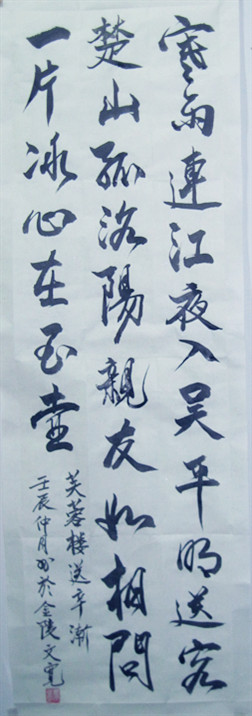 寒雨連江夜入吴平明送客
楚山孤洛陽親友如相問
一片冰心在玉壶
芙蓉楼送辛漸
壬辰仲月书於金陵文宽